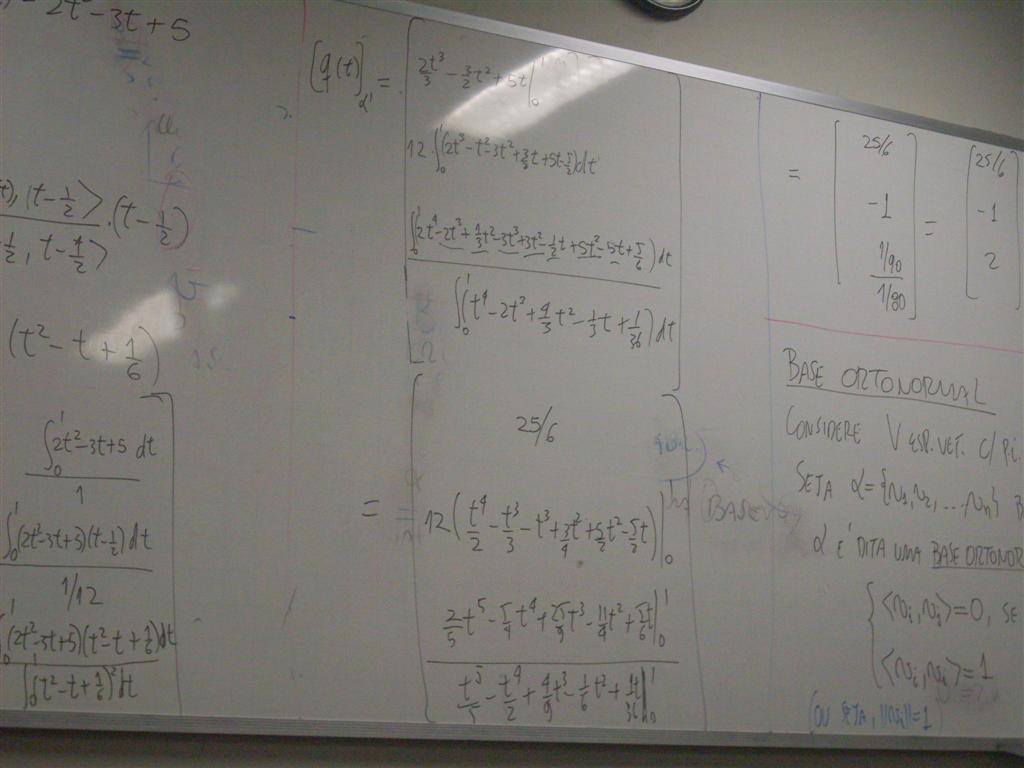 2t² - 3t + 5
⟩, (t - 1/2)⟩ / 1/2, t - 1/2⟩ . (t - 1/2)
(t² - t + 1/6)
∫₀¹ 2t² - 3t + 5 dt / 1
∫₀¹ (2t² - 3t + 5)(t - 1/2) dt / 1/12
(2t² - 3t + 5)(t² - t + 1/6) dt / ∫₀¹ (t² - t + 1/6)² dt
[q(t)]α' =
2t³/3 - 3/2 t² + 5t |₀
12 . ∫₀¹ (2t³ - t² - 3t² + 3/2 t + 5t - 5/2) dt
∫₀¹ (2t⁴ - 2t³ + 1/3 t² - 3t³ + 3t² - 1/2 t + 5t² - 5t + 5/6) dt
∫₀¹ (t⁴ - 2t³ + 4/3 t² - 1/3 t + 1/36) dt
=
25/6
12 (t⁴/2 - t³/3 - t³ + 3/4 t² + 5/2 t² - 5/2 t) |₀¹
2/5 t⁵ - 5/4 t⁴ + 25/9 t³ - 11/4 t² + 5/6 t |₀¹
t⁵/5 - t⁴/2 + 4/9 t³ - 1/6 t² + 1t/36 |₀¹
= [25/6 -1 1/90 / 1/80] = [25/6 -1 2]
BASE ORTONORMAL
CONSIDERE V ESP. VET. C/ P.I.
SEJA α = {v₁, v₂, ... vₙ} B
α É DITA UMA BASE ORTONOR
⟨vᵢ, vⱼ⟩ = 0, SE
⟨vᵢ, vᵢ⟩ = 1
(OU SEJA, ||vᵢ|| = 1)